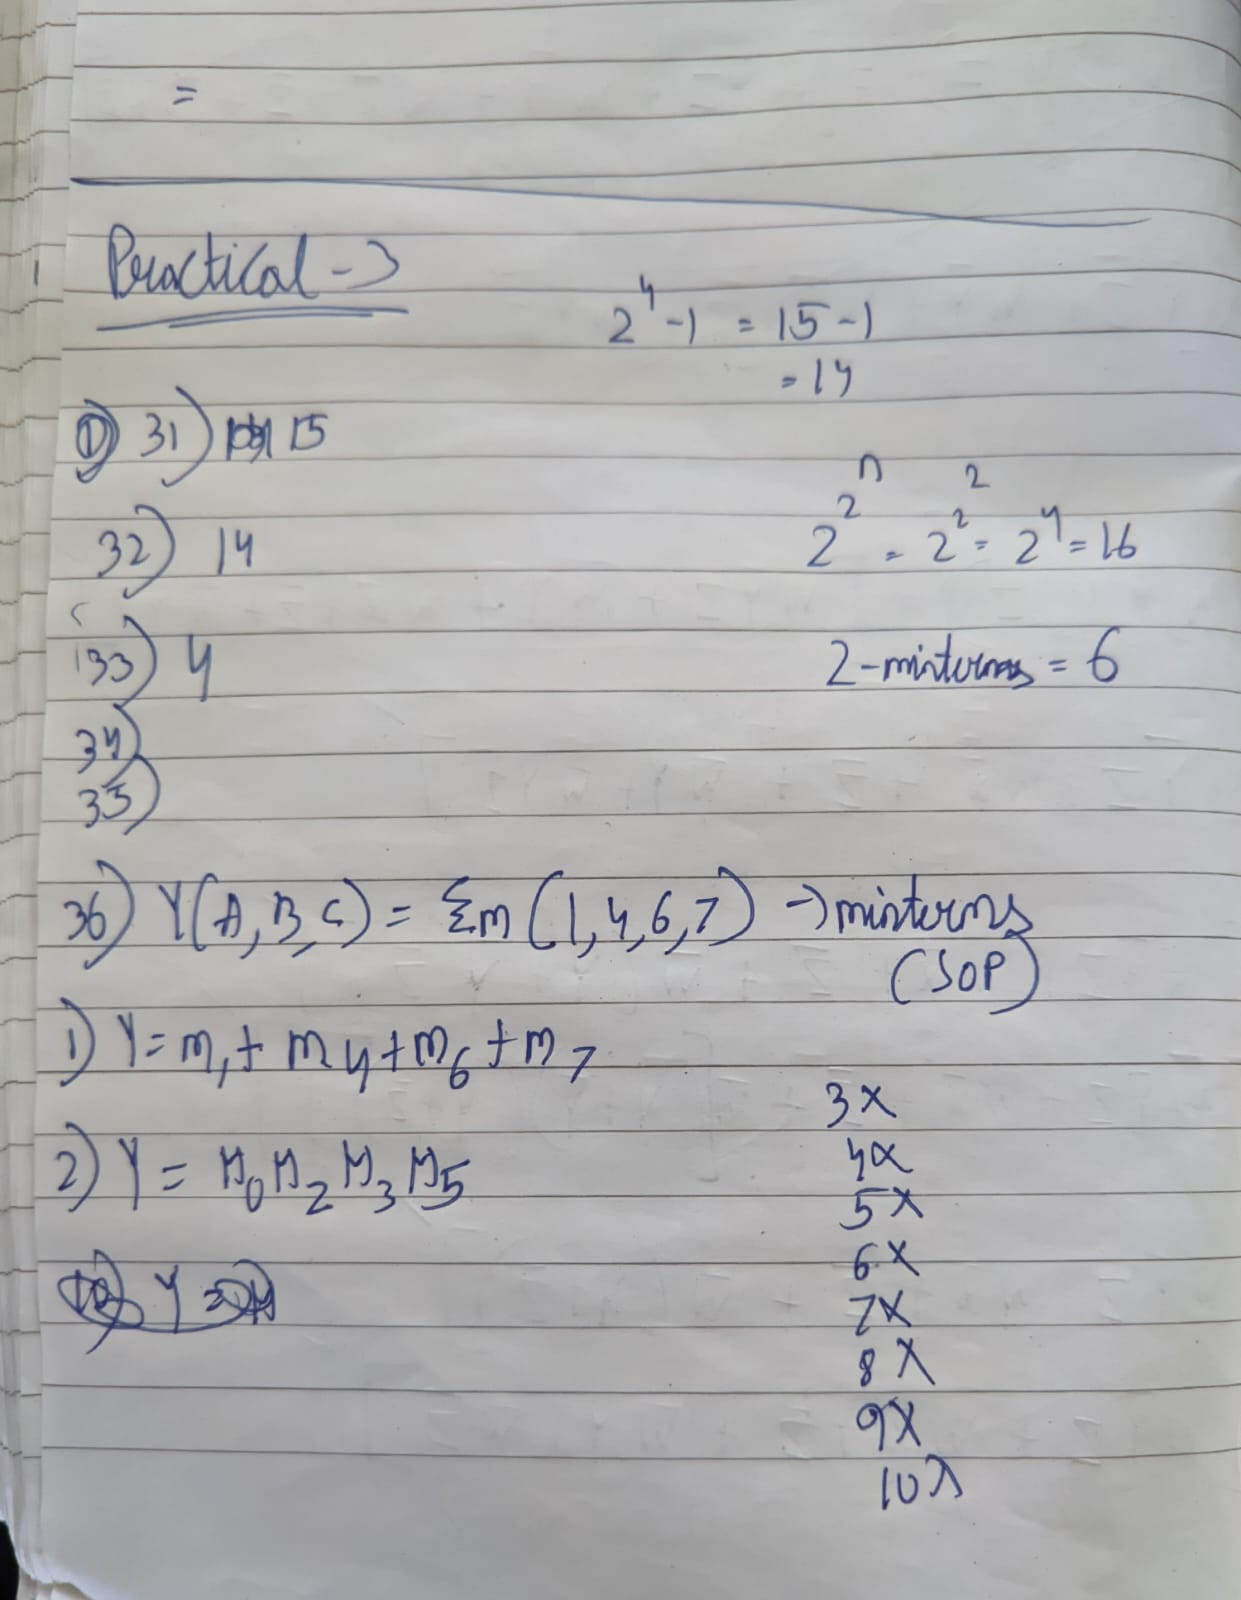 =
Practical - 3
2⁴ - 1 = 15 - 1
= 14
① 31) 15
32) 14
2^2^n = 2^2^2 = 2^4 = 16
33) 4
2-minterms = 6
34)
35)
36) Y(A, B, C) = Σm (1, 4, 6, 7) → minterms
(SOP)
1) Y = m₁ + m₄ + m₆ + m₇
3X
2) Y = M₀ M₂ M₃ M₅
4X
5X
6X
7X
8X
9X
10X